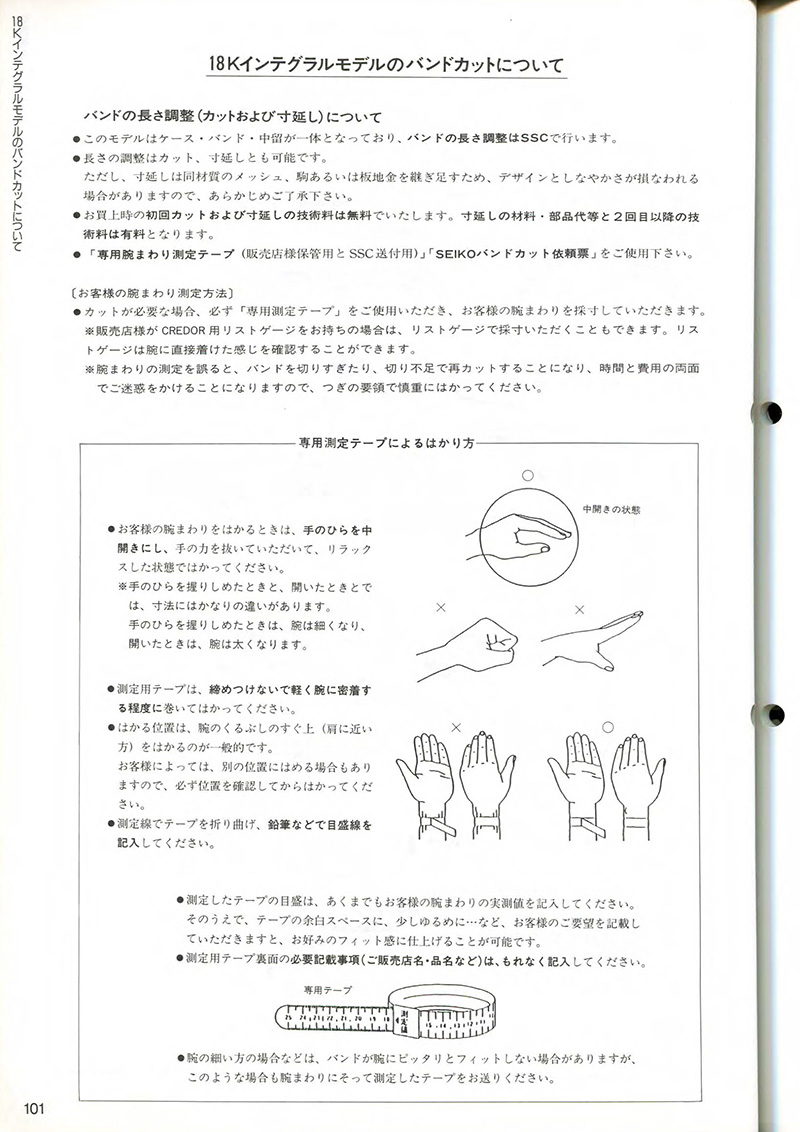 18Kインテグラルモデルのバンドカットについて
18Kインテグラルモデルのバンドカットについて
バンドの長さ調整(カットおよび寸延し)について
●このモデルはケース・バンド・中留が一体となっており、バンドの長さ調整はSSCで行います。
●長さの調整はカット、寸延しとも可能です。
ただし、寸延しは同材質のメッシュ、駒あるいは板地金を継ぎ足すため、デザインとしなやかさが損なわれる
場合がありますので、あらかじめご了承下さい。
●お買上時の初回カットおよび寸延しの技術料は無料でいたします。寸延しの材料・部品代等と2回目以降の技
術料は有料となります。
●「専用腕まわり測定テープ(販売店様保管用とSSC送付用)」「SEIKOバンドカット依頼票」をご使用下さい。
〔お客様の腕まわり測定方法〕
●カットが必要な場合、必ず「専用測定テープ」をご使用いただき、お客様の腕まわりを採寸していただきます。
※販売店様がCREDOR用リストゲージをお持ちの場合は、リストゲージで採寸いただくこともできます。リス
トゲージは腕に直接着けた感じを確認することができます。
※腕まわりの測定を誤ると、バンドを切りすぎたり、切り不足で再カットすることになり、時間と費用の両面
でご迷惑をかけることになりますので、つぎの要領で慎重にはかってください。
専用測定テープによるはかり方
○
中開きの状態
●お客様の腕まわりをはかるときは、手のひらを中
開きにし、手の力を抜いていただいて、リラック
スした状態ではかってください。
※手のひらを握りしめたときと、開いたときとで
は、寸法にはかなりの違いがあります。
手のひらを握りしめたときは、腕は細くなり、
開いたときは、腕は太くなります。
× ×
●測定用テープは、締めつけないで軽く腕に密着す
る程度に巻いてはかってください。
●はかる位置は、腕のくるぶしのすぐ上(肩に近い
方)をはかるのが一般的です。
お客様によっては、別の位置にはめる場合もあり
ますので、必ず位置を確認してからはかってくだ
さい。
●測定線でテープを折り曲げ、鉛筆などで目盛線を
記入してください。
× ○
●測定したテープの目盛は、あくまでもお客様の腕まわりの実測値を記入してください。
そのうえで、テープの余白スペースに、少しゆるめに…など、お客様のご要望を記載し
ていただきますと、お好みのフィット感に仕上げることが可能です。
●測定用テープ裏面の必要記載事項(ご販売店名・品名など)は、もれなく記入してください。
専用テープ
測定値
25 24 23 22 21 20 19 18
15 14 13 12
●腕の細い方の場合などは、バンドが腕にピッタリとフィットしない場合がありますが、
このような場合も腕まわりにそって測定したテープをお送りください。
101